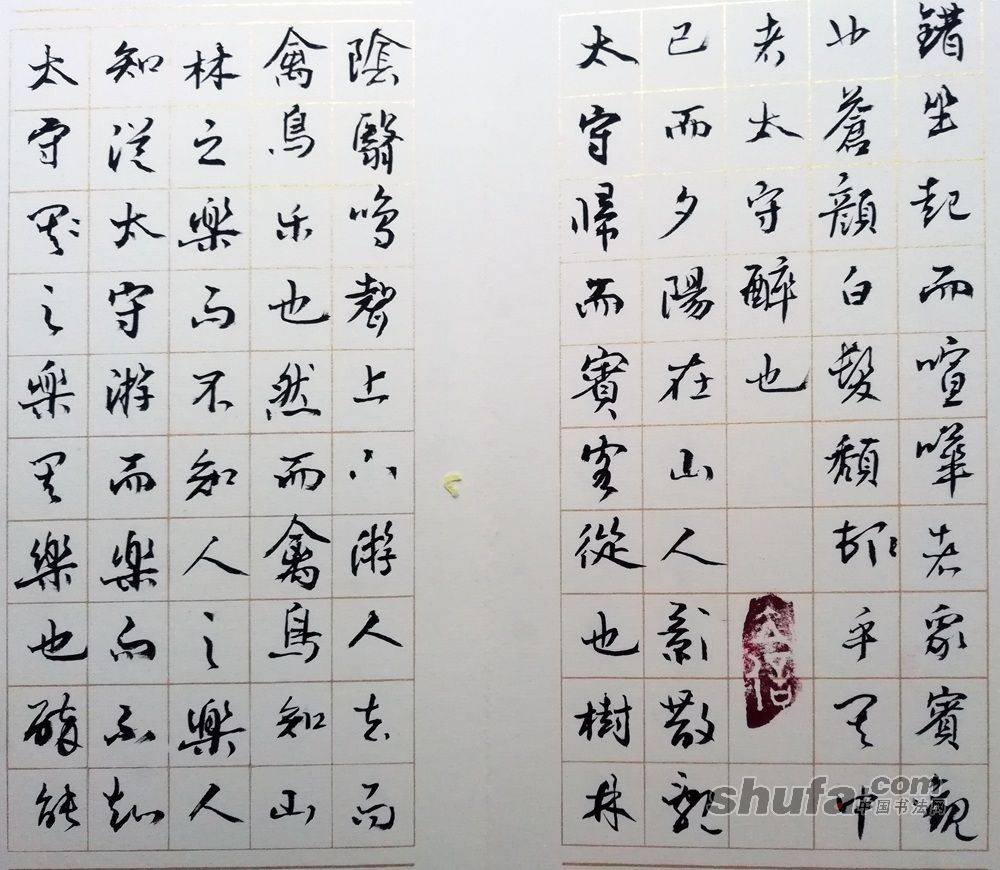 錯坐起而喧嘩者衆賓觀
也蒼顏白髮頹乎其中
者太守醉也
已而夕陽在山人影散亂
太守歸而賓客從也樹林
陰翳鳴聲上下游人去而
禽鳥乐也然而禽鳥知山
林之樂而不知人之樂人
知從太守游而樂而不知
太守其之樂其樂也醉能
shufa.com
中国书法网